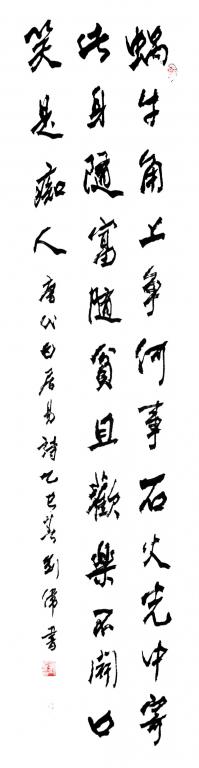 蝸牛角上争何事石火光中寄
此身隨富随貧且歡樂不開口
笑是痴人
唐代白居易詩乙巳春劉偉書